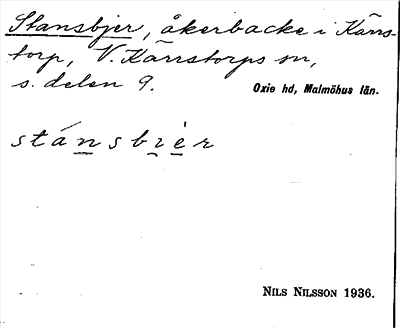 Stansbjer, åkerbacke i Kärrs-
torp, V. Kärrstorps sn,
s. delen 9.
Oxie hd, Malmöhus län.
stánsbi̯èr
NILS NILSSON 1936.